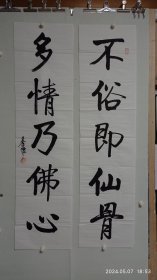 不俗即仙骨
多情乃佛心
2024.05.07 16:53